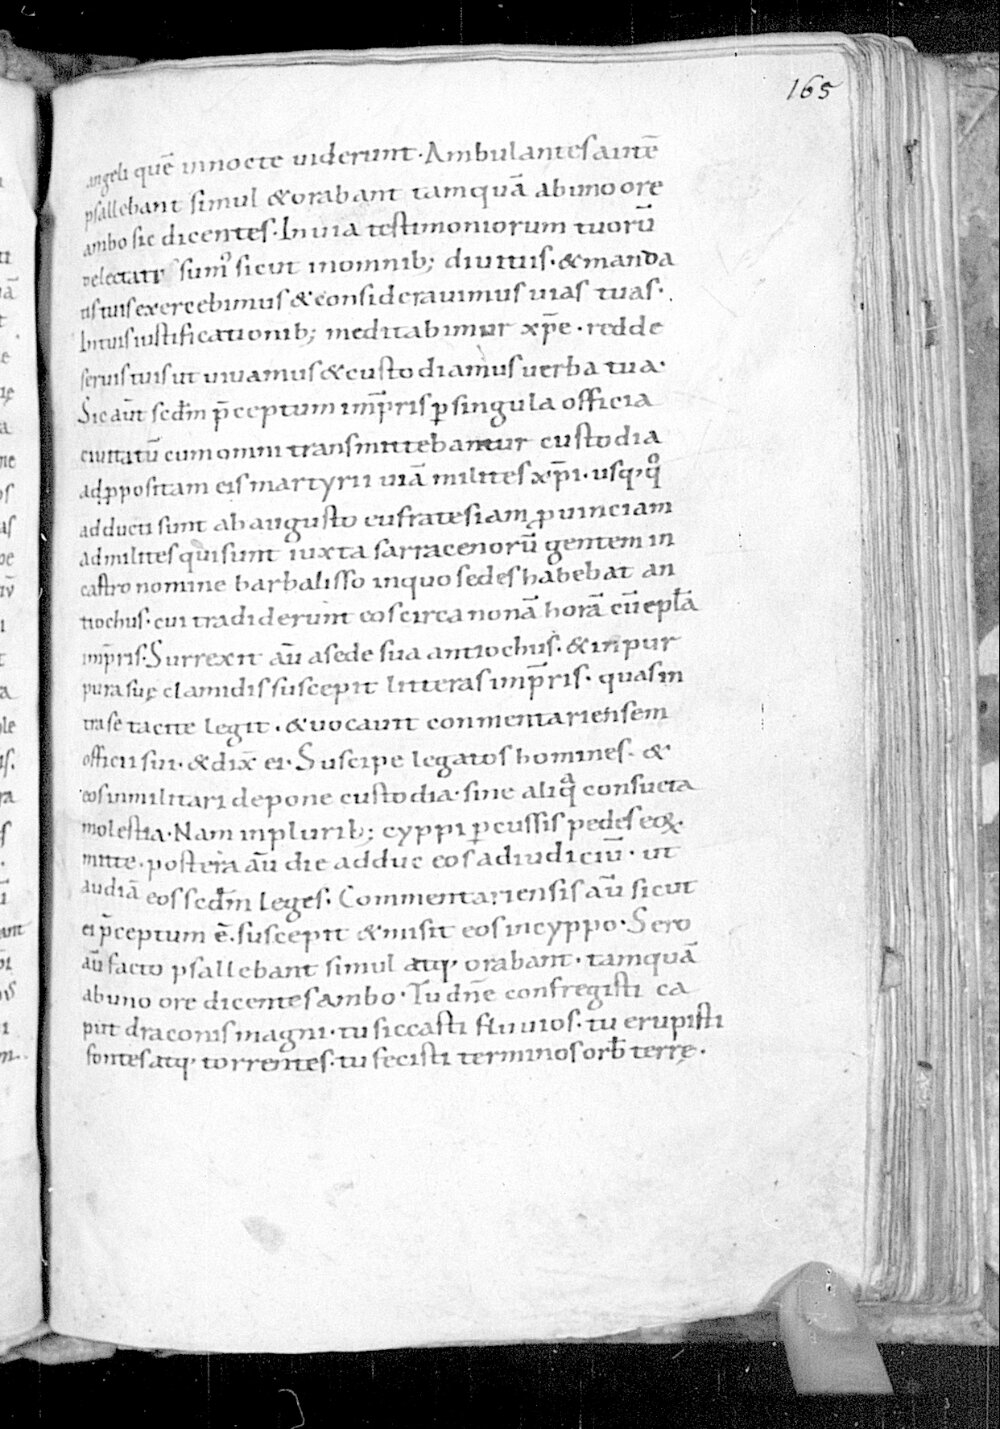 165
angeli quē in nocte uiderunt. Ambulantes autē
psallebant simul & orabant tamquā ab uno ore
ambo sic dicentes. In uia testimoniorum tuorū
delectati sum᾽ sicut in omnib; diuitiis. & manda
tis tuis exercebimus & considerauimus uias tuas.
In tuis iustificationib; meditabimur xp̄e. redde
seruis tuis ut uiuamus & custodiamus uerba tua.
Sic aūt scdm̄ p̄ceptum imp̄ris ꝑ singula officia
ciuitatū cum omni transmittebantur custodia
ad ꝓpositam eis martyrii uiā milites xp̄i. usq, qͦ
adducti sunt ab augusto eufratesiam ꝓuinciam
ad milites qui sunt iuxta sarracenorū gentem in
castro nomine barbalisso in quo sedes habebat an
tiochus. cui tradiderunt eos circa nonā horā cū epl̄a
imp̄ris. Surrexit aū a sede sua antiochus. & in pur
pura suę clamidis suscepit litteras imp̄ris. quas in
tra se tacite legit. & uocauit conmentariensem
officii sui. & dix̄ ei. Suscipe legatos homines. &
eos in militari depone custodia. sine aliqͣ consueta
molestia. Nam in plurib; cyppi ꝑcussis pedes eoꝝ.
mitte. postera aū die adduc eos ad iudiciū. ut
audiā eos scdm̄ leges. Commentariensis aū sicut
ei p̄ceptum ē. suscepit & misit eos in cyppo. Sero
aū facto psallebant simul atq, orabant. tamquā
ab uno ore dicentes ambo. Tu dn̄e confregisti ca
put draconis magni. tu siccasti fluuios. tu erupisti
fontes atq, torrentes. tu fecisti terminos orb̄ terrę.